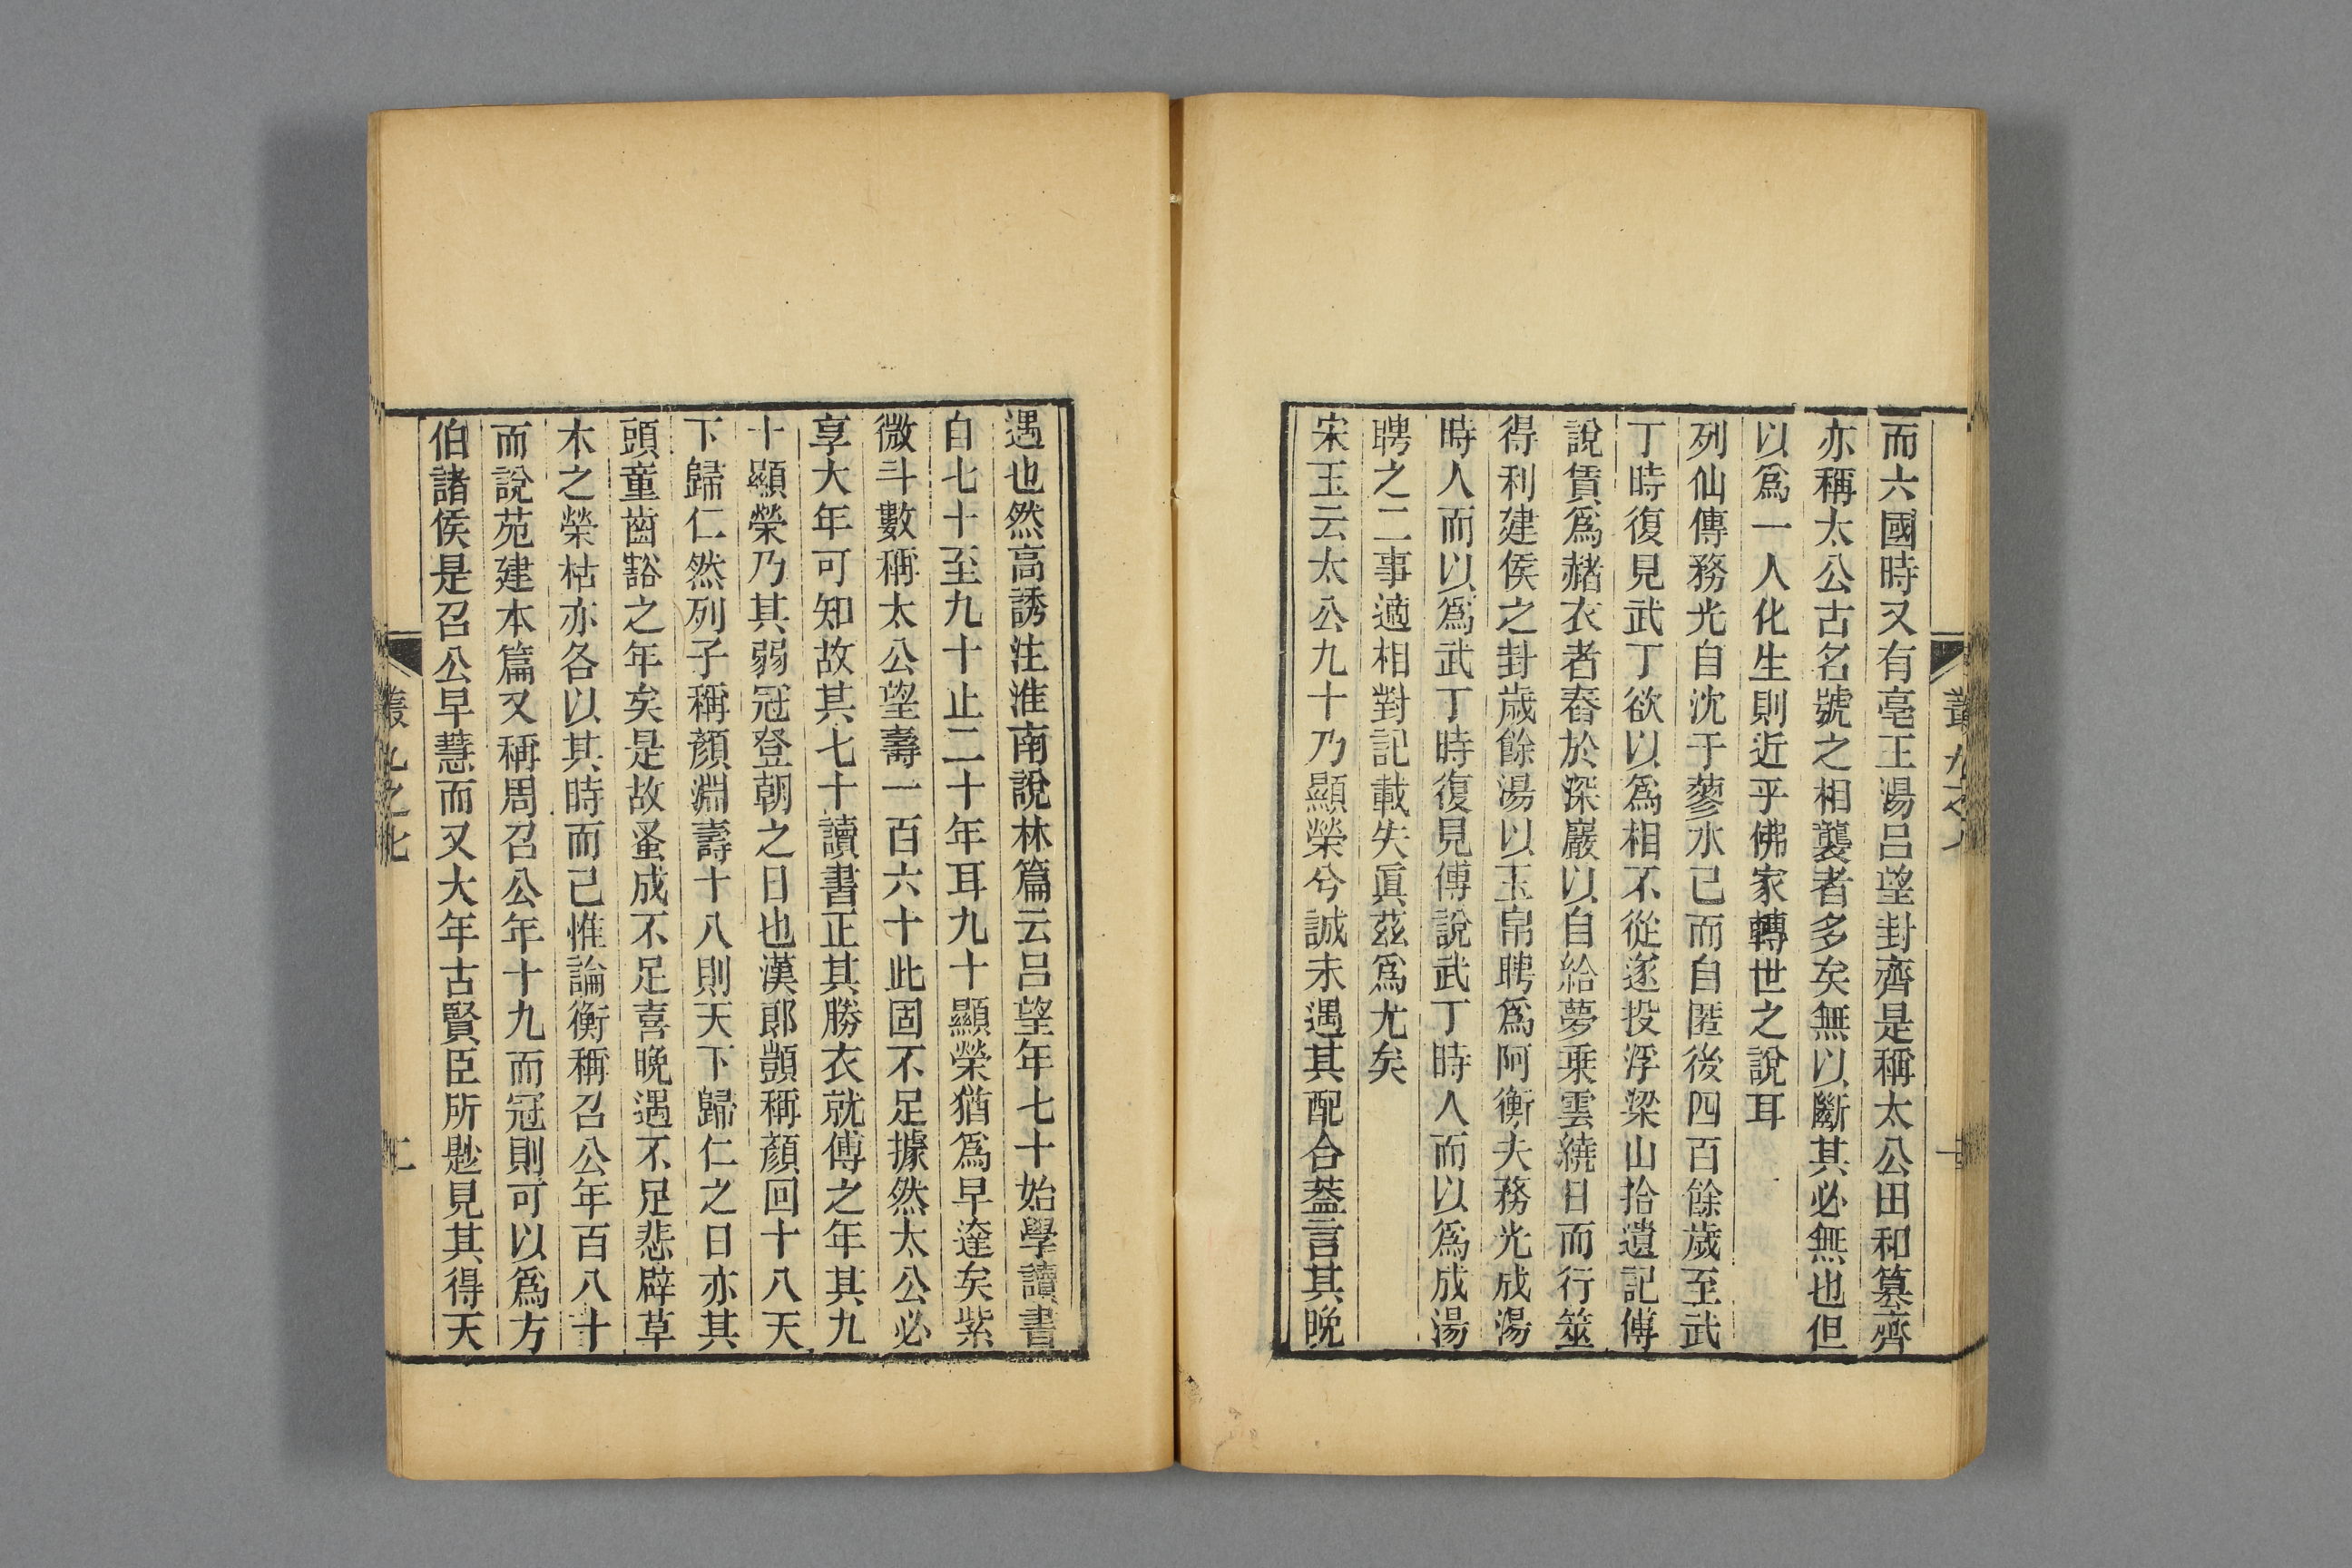 而六國時又有亳王湯呂望封齊是稱太公田和篡齊
亦稱太公古名號之相襲者多矣無以斷其必無也但
以爲一人化生則近乎佛家轉世之說耳
列仙傳務光自沈于蓼水已而自匿後四百餘歲至武
丁時復見武丁欲以爲相不從遂投浮梁山拾遺記傅
說賃爲赭衣者舂於深巖以自給夢乗雲繞日而行筮
得利建侯之封歲餘湯以玉帛聘爲阿衡夫務光成湯
時人而以爲武丁時復見傅說武丁時人而以爲成湯
聘之二事適相對記載失眞茲爲尤矣
宋玉云太公九十乃顯榮兮誠未遇其配合蓋言其晚
遇也然高誘注淮南說林篇云呂望年七十始學讀書
自七十至九十止二十年耳九十顯榮猶爲早達矣紫
微斗數稱太公望壽一百六十此固不足據然太公必
享大年可知故其七十讀書正其勝衣就傅之年其九
十顯榮乃其弱冠登朝之日也漢郎顗稱顏回十八天
下歸仁然列子稱顏淵壽十八則天下歸仁之日亦其
頭童齒豁之年矣是故蚤成不足喜晚遇不足悲辟草
木之榮枯亦各以其時而已惟論衡稱召公年百八十
而說苑建本篇又稱周召公年十九而冠則可以爲方
伯諸侯是召公早慧而又大年古賢臣所尟見其得天
叢九之七